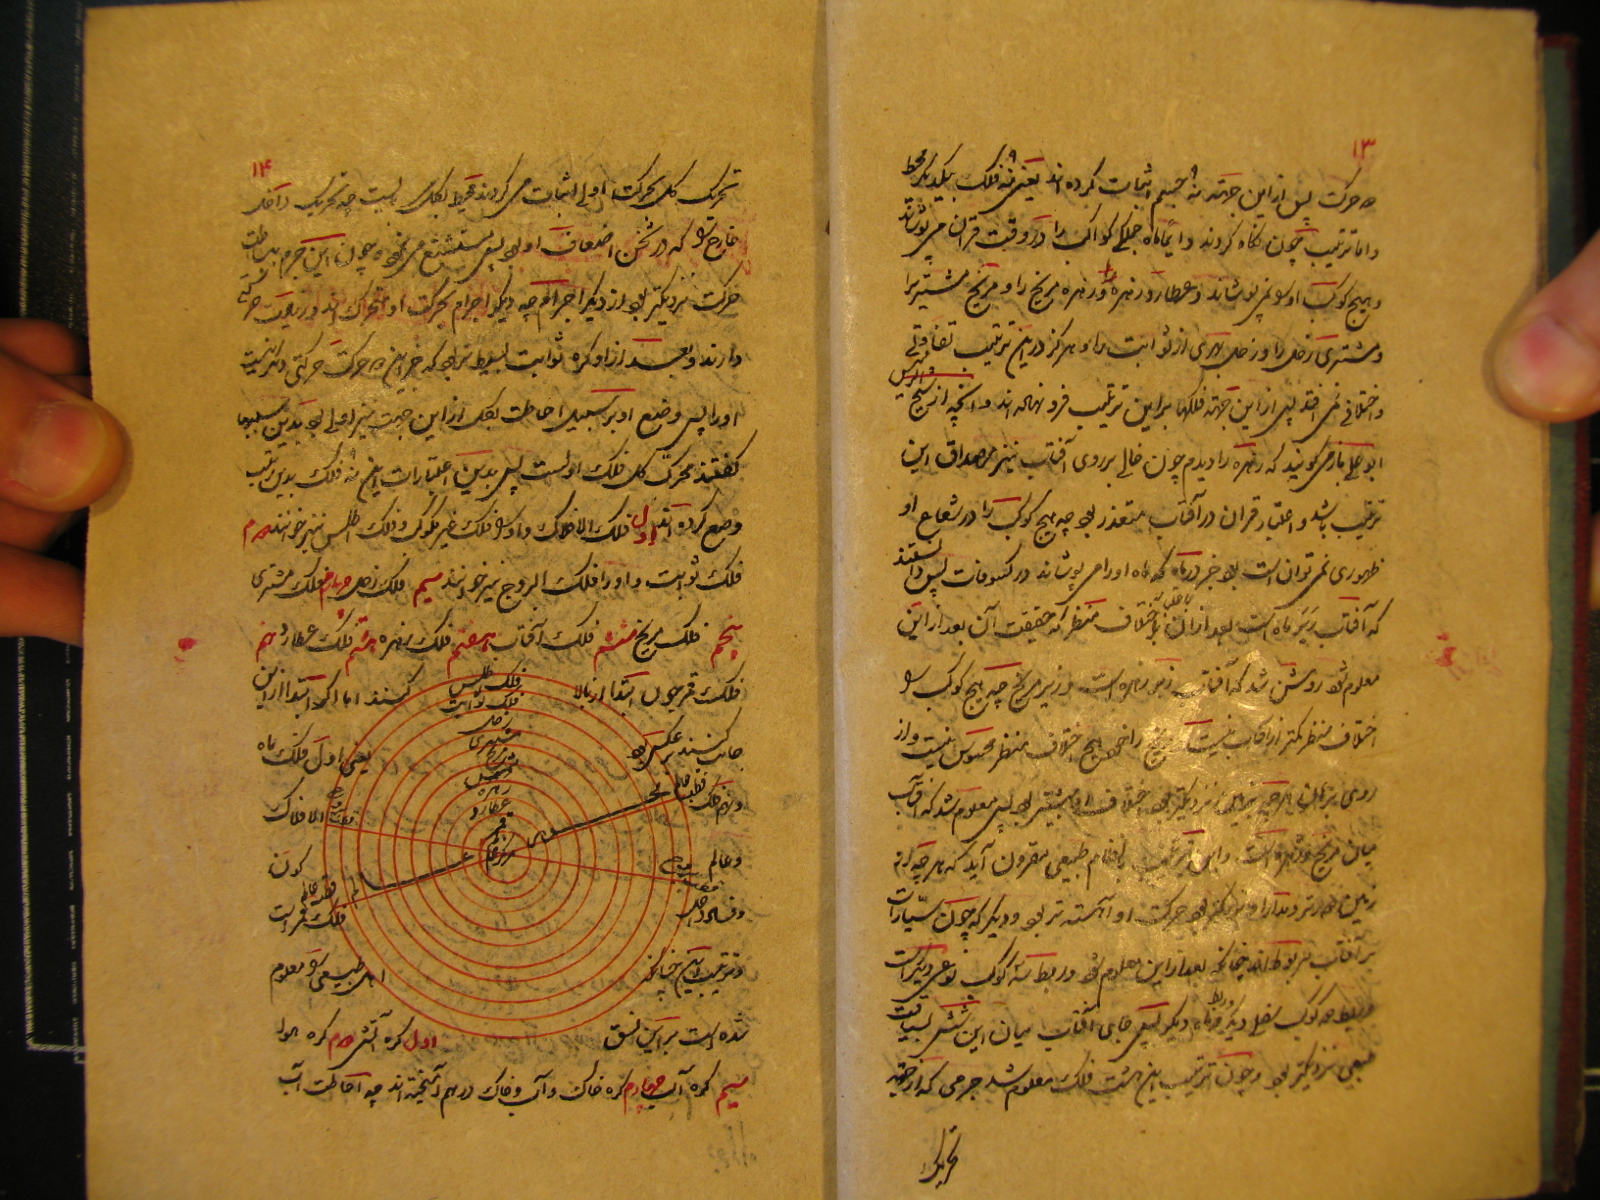 ۱۳
حرکت پس از این جهة نه جسم اثبات کرده اند یعنی نه فلک بیکدیگر محیط
و اما ترتیب چون نگاه کردند دایما ماه جملهٔ کواکب را در وقت قران می پوشاند
و هیچ کوکب او را نمی پوشاند و عطارد زهره را و زهره مریخ را و مریخ مشتریرا
و مشتری زحل را و زحل بعضی از ثوابت را و هرگز درین ترتیب تفاوتی
و اختلافی نمی افتد پس از این جهة فلکها بر این ترتیب فرو نهاده اند و آنچه از شیخ
ابوعلی باز می گویند که زهره را دیدم چون خالی بر روی آفتاب نیز مصداق این
ترتیب باشد و اعتبار قران در آفتاب متعذر بود چه هیچ کوکب را در شعاع او
ظهوری نمی تواند بود جز ماه که ماه او را می پوشاند در کسوفات پس دانستند
که آفتاب زبر ماه است بعد از آن باختلاف منظر که حقیقت آن بعد از این
معلوم شود روشن شد که آفتاب زیر مریخ چه هیچ کوکب را
اختلاف منظر کمتر از آفتاب نیست مریخ را خود هیچ اختلاف منظر محسوس نیست و از
روی برهان هر چه بزمین نزدیکتر بود اختلاف او بیشتر بود پس معلوم شد که آفتاب
میان مریخ و زهره است و این ترتیب با نظام طبیعی مقرون آید که هر چه از
زمین دورتر و مدار او بزرگتر بود حرکت او آهسته تر بود و دیگر که چون سیارات
بآفتاب مربوط اند چنانکه بعد از این معلوم شود و ربط سه کوکب نوعی دیگر است
و ربط دو کوکب سفلی دیگر و ربط ماه دیگر پس جای آفتاب میان این شش بسیاقت
طبیعی نزدیکتر بود و چون ترتیب این هشت فلک معلوم شد جرمی که از جهة
تحریک
۱۴
تحریک کل بحرکت اولی اثبات می کردند محیط بکل بایست چه تحریک داخل
خارج را که در ثخن اضعاف او بود مستشنع می نمود و چون این جرم ببساطت
حرکت نزدیکتر بود از دیگر اجرام چه دیگر اجرام بحرکت او متحرک اند و زیادت حرکتی
دارند و بعد از او کره ثوابت بسیط تر بود که جز این دو حرکت حرکتی دیگر نیست
او را پس وضع او بر سبیل احاطت بکل از این جهت نیز اولی بود بدین سببها
گفتند محرک کل فلک اولست پس بدین اعتبارات این نه فلک بدین ترتیب
وضع کرده اند اول فلک الافلاک و او را فلک غیر مکوکب و فلک اطلس نیز خوانند دوم
فلک ثوابت و او را فلک البروج نیز خوانند سیم فلک زحل چهارم فلک مشتری
پنجم فلک مریخ ششم فلک آفتاب هفتم فلک زهره هشتم فلک عطارد نهم
فلک قمر چون ابتدا از بالا کنند اما اگر ابتدا از این
جانب کنند بر عکس بود یعنی اول فلک ماه
و نهم فلک الافلاک
و عالم کون
و فساد داخل فلک قمر است
و ترتیب این چنانکه اهل طبیعی را معلوم
شده است بر این نسق اول کره آتش دوم کره هوا
سیم کره آب چهارم کره خاک و آب و خاک درهم آمیخته اند چه احاطت آب
فلک اطلس
فلک ثوابت
زحل
مشتری
مریخ
شمس
زهره
عطارد
قمر
مرکز عالم
محور
قطب عالم
قطب عالم